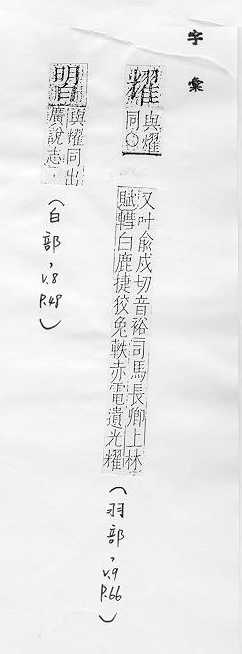 字彙
耀
與耀
同○
又叶俞戍切音裕司馬長卿上林
賦轊白鹿捷狡兔軼赤電遺光耀
（羽部，v.9 P.66）
與耀同出
廣說志．
（白部，v.8 P.48）